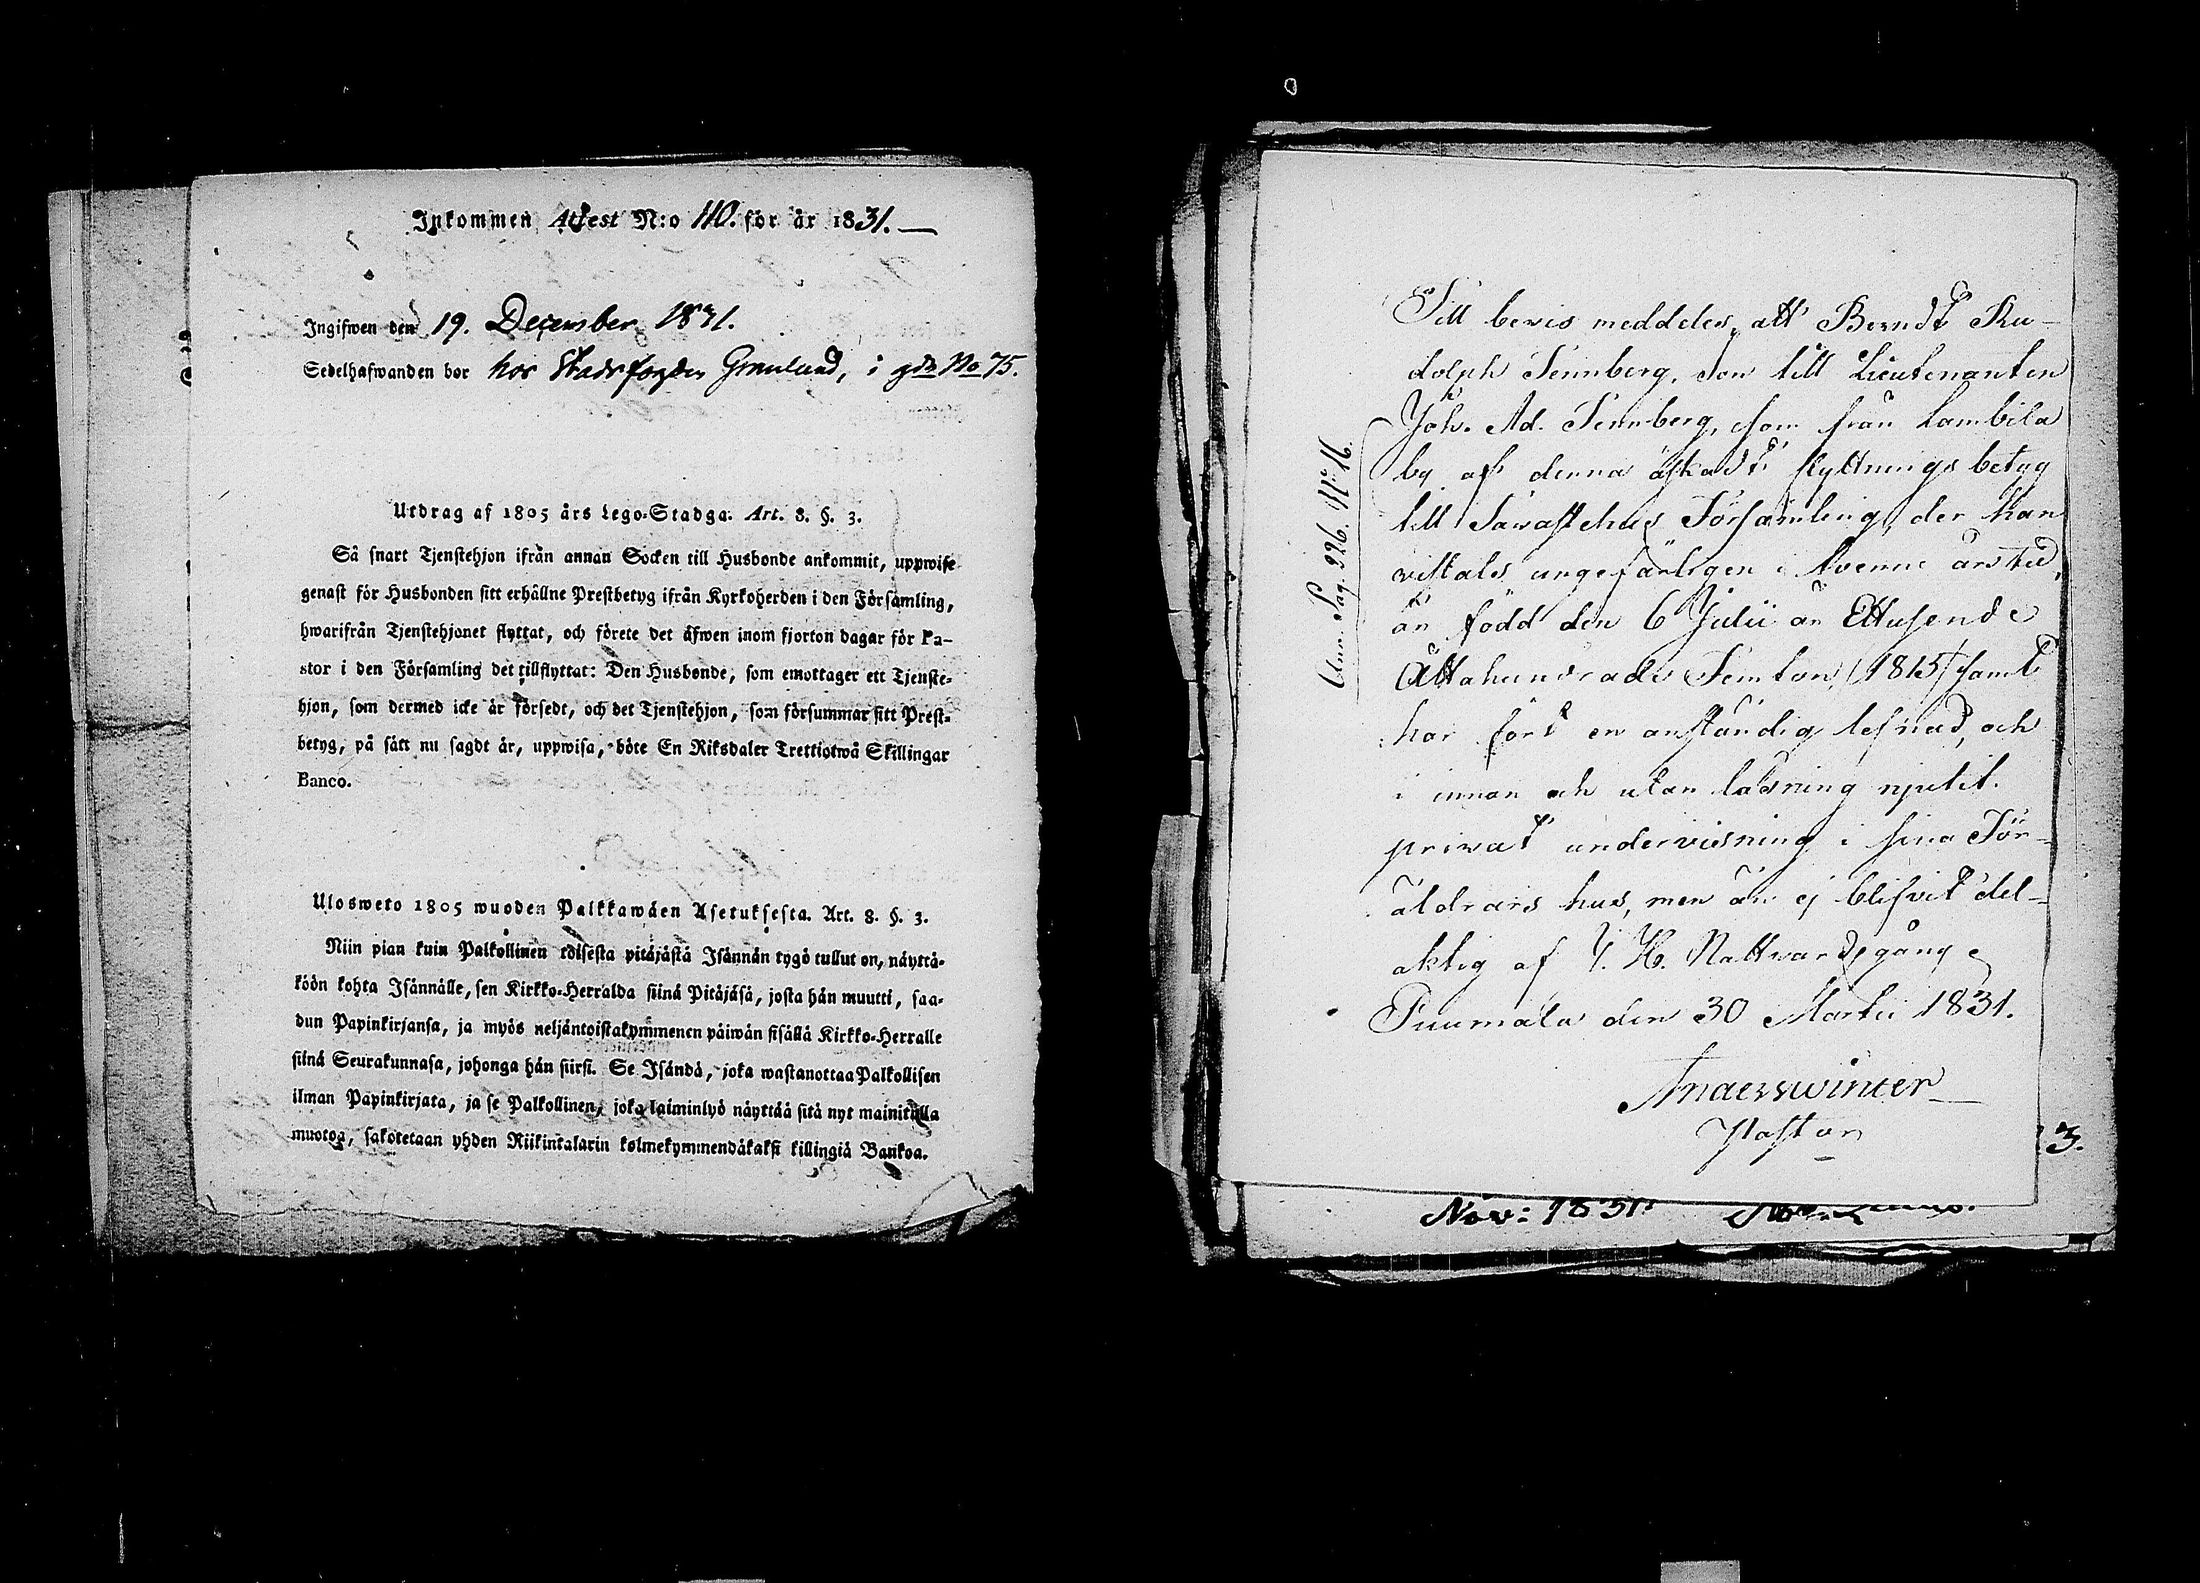 Inkommen Attest N:o 110. för år 1831.
Ingifwen den 19. December 1831.
Sedelhafwanden bor hos Stadsfogden Grönlund, i gdn No 75.
Utdrag af 1805 års Lego-Stadga. Art. 8. §. 3.
Så snart Tjenstehjon ifrån annan Socken till Husbonde ankommit, uppwise
genast för Husbonden sitt erhållne Prestbetyg ifrån Kyrkoherden i den Församling,
hwarifrån Tjenstehjonet flyttat, och förete det äfwen inom fjorton dagar för Pa-
stor i den Församling det tillflyttat: Den Husbonde, som emottager ett Tjenste-
hjon, som dermed icke är försedt, och det Tjenstehjon, som försummar sitt Prest-
betyg, på sätt nu sagdt är, uppwisa, böte En Riksdaler Trettiotwå Skillingar
Banco.
Ulosweto 1805 wuoden Palkkawäen Asetuksesta. Art. 8. §. 3.
Niin pian kuin Palkollinen toisesta pitäjästä Isännän tygö tullut on, näyttä-
köön kohta Isännälle, sen Kirkko-Herralda siinä Pitäjäsä, josta hän muutti, saa-
dun Papinkirjansa, ja myös neljäntoistakymmenen päiwän sisällä Kirkko-Herralle
siinä Seurakunnasa, johonga hän siirsi. Se Isändä, joka wastanottaa Palkollisen
ilman Papinkirjata, ja se Palkollinen, joka laiminlyö näyttää sitä nyt mainitulla
muotoa, sakotetaan yhden Riikintalarin kolmekymmendäkaksi killingiä Bankoa.
Till bevis meddeles, att Berndt Ru-
dolph Tennberg, son till Lieutenanten
Joh. Ad. Tennberg, som från Lambila
by af denna äskadt flyttnings betyg
till Tavastehus Församling, der han
vistats ungefärligen i tvenne års tid,
är född den 6 Julii år Ettusende
Åttahundrade Femton /1815/ samt
har fört en anständig lefnad, och
i innan och utan läsning njutit
privat undervisning i sina För-
äldrars hus, men än ej blifvit del-
aktig af H. H. Nattvardsgång
Puumala den 30 Martii 1831.
Anders Winter
Pastor
Ann. Pag. 226. N:o 16.
3.
Nov: 1831